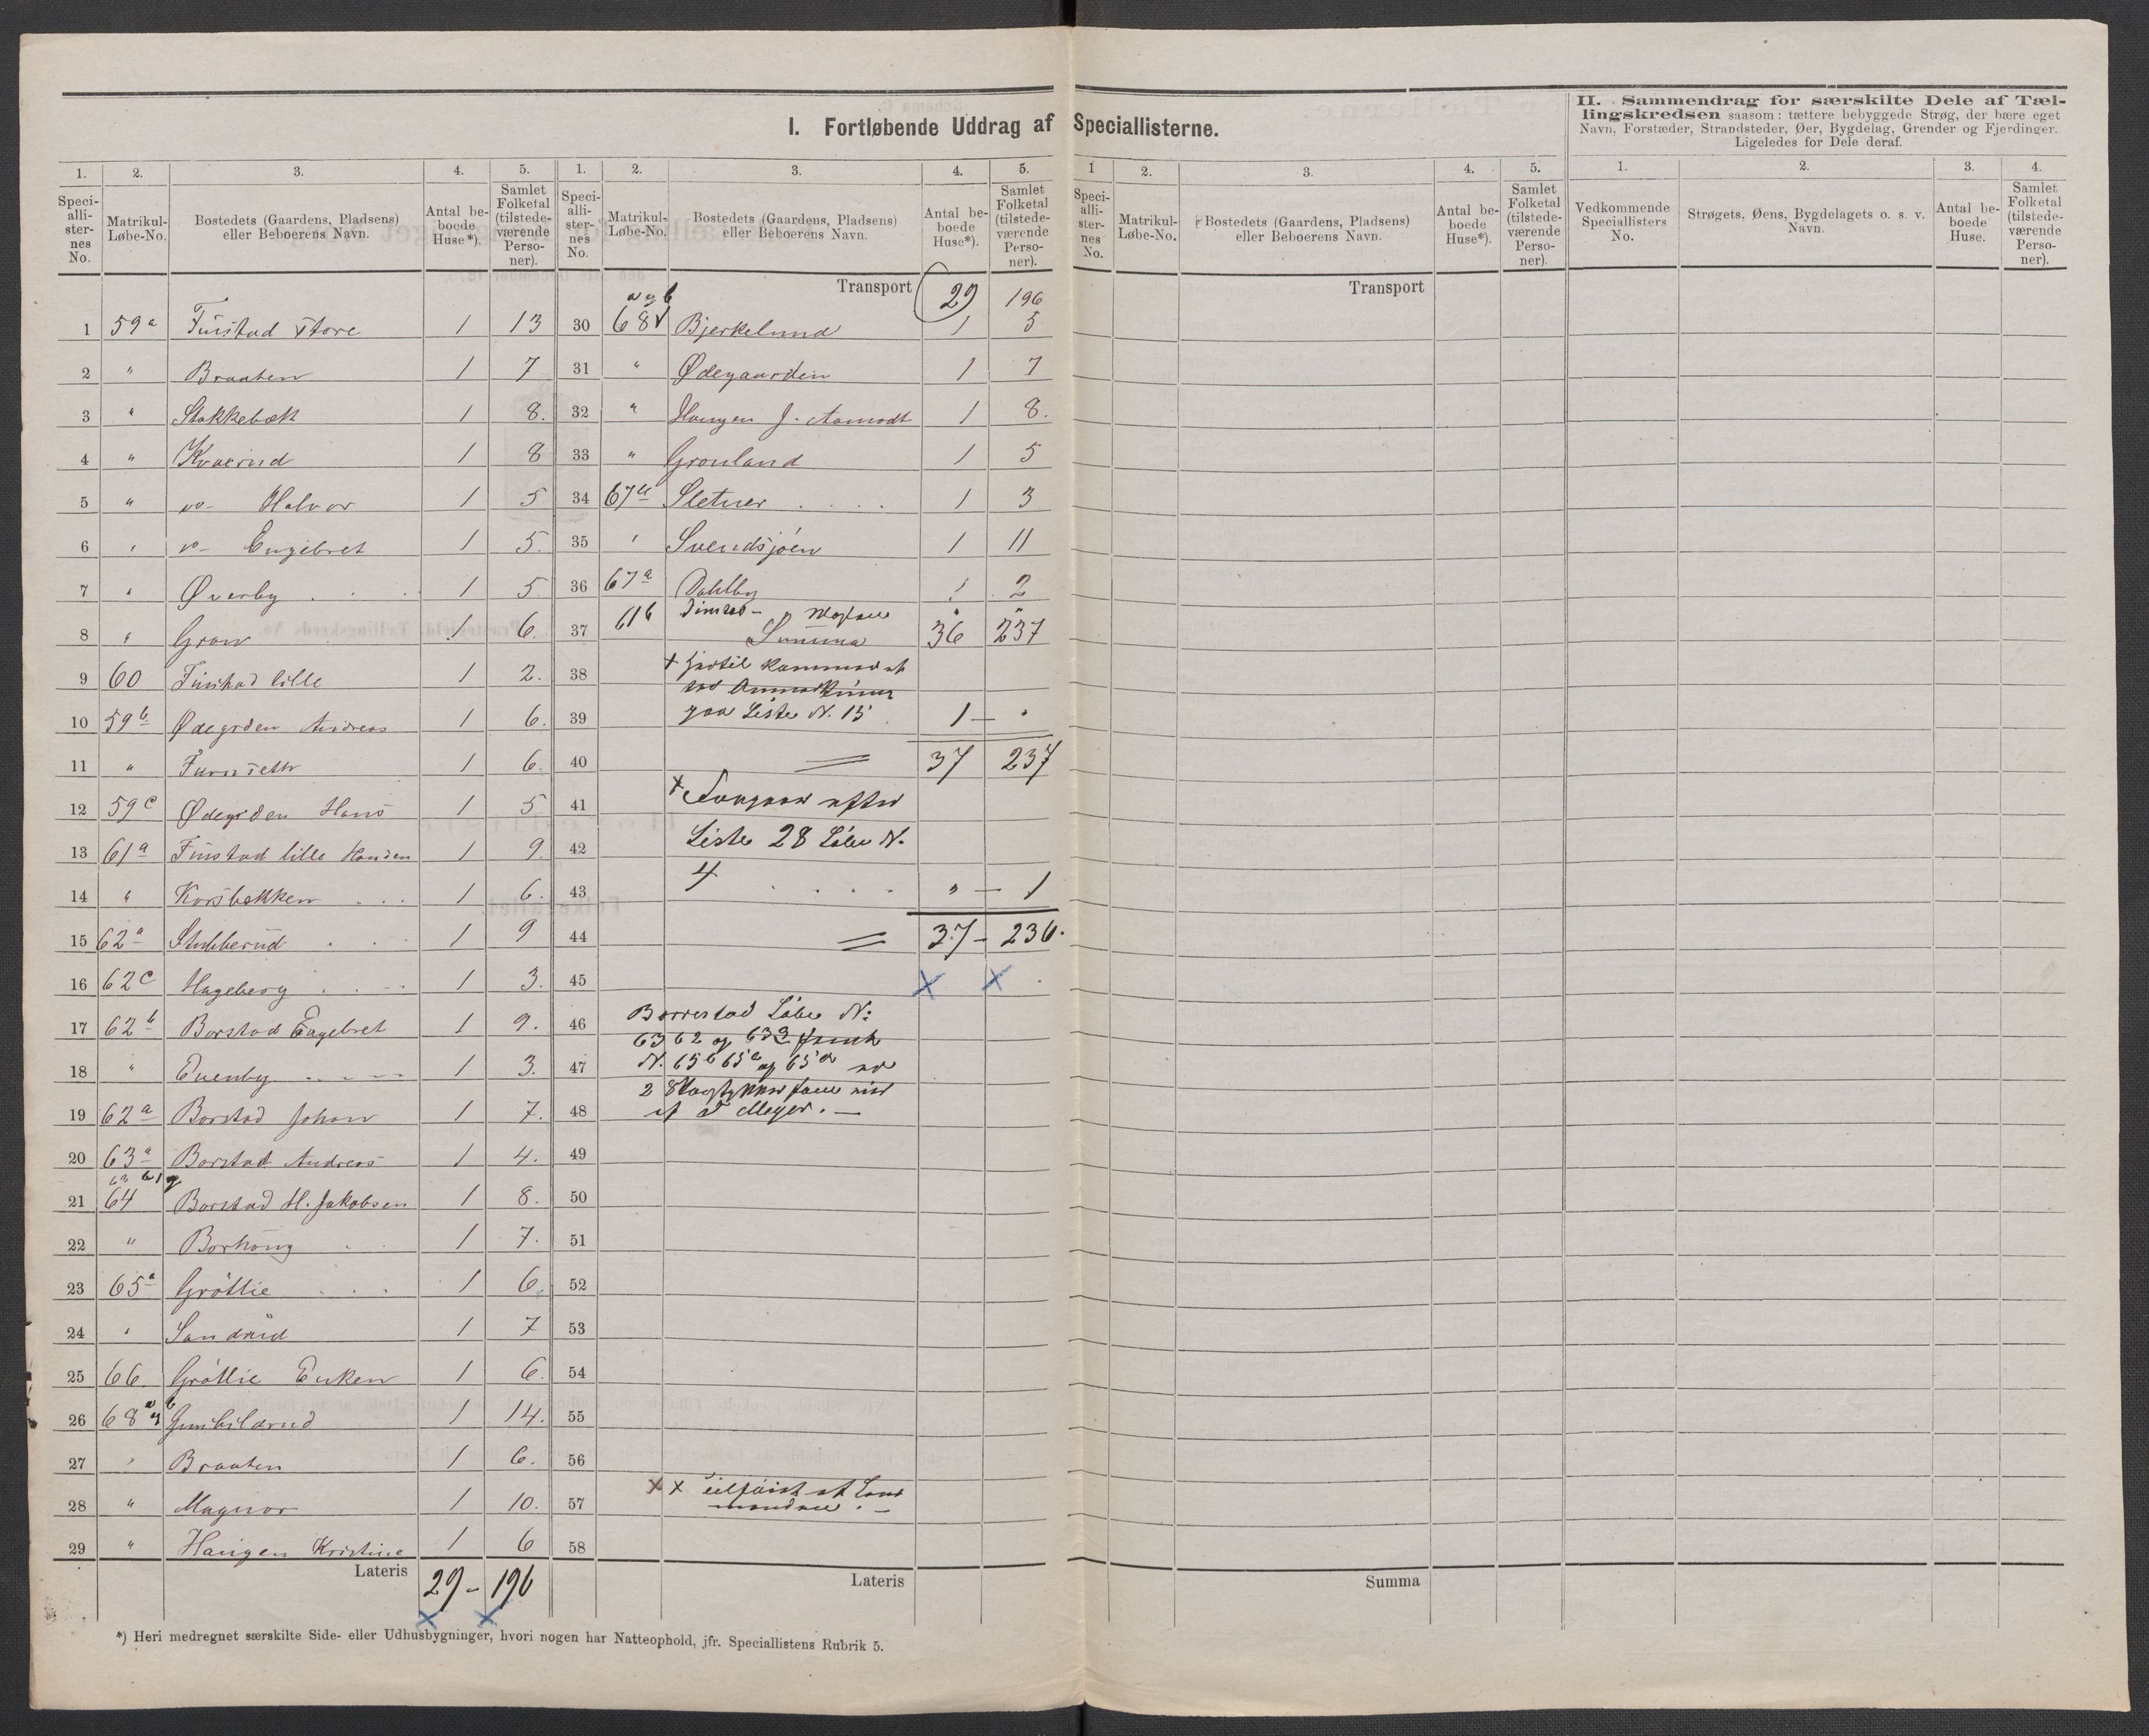 I. Fortløbende Uddrag af Speciallisterne.
II. Sammendrag for særskilte Dele af Tæl-
lingskredsen saasom: tættere bebyggede Strøg, der bære eget
Navn, Forstæder, Strandsteder, Øer, Bygdelag, Grender og Fjerdinger.
Ligeledes for Dele deraf.
1. 2. 3. 4. 5. 1. 2. 3. 4. 5. 1 2. 3. 4. 5. 1. 2. 3. 4.
Speci-alli-ster-nes No. Matrikul-Løbe-No. Bostedets (Gaardens, Pladsens) eller Beboerens Navn. Antal be-boede Huse*). Samlet Folketal (tilstede-værende Perso-ner).
Speci-alli-ster-nes No. Matrikul-Løbe-No. Bostedets (Gaardens, Pladsens) eller Beboerens Navn. Antal be-boede Huse*). Samlet Folketal (tilstede-værende Perso-ner).
Speci-alli-ster-nes No. Matrikul-Løbe-No. Bostedets (Gaardens, Pladsens) eller Beboerens Navn. Antal be-boede Huse*). Samlet Folketal (tilstede-værende Perso-ner).
Vedkommende Speciallisters No. Strøgets, Øens, Bygdelagets o. s. v. Navn. Antal be-boede Huse. Samlet Folketal (tilstede-værende Perso-ner).
1 59a Finstad Store 1 13
2 " Braaten 1 7
3 " Stakkebæk 1 8.
4 " Kvaernd 1 8
5 " Halvor 1 5
6 " Engebret 1 5.
7 " Øverby 1 5
8 " Gran 1 6.
9 60 Finstad lille 1 2.
10 59b Ødegrden Andreas 1 6.
11 " Furuseth 1 6.
12 59c Ødegrden Hans 1 5
13 61a Finstad lille Hansen 1 9.
14 " Korsbakken 1 6.
15 62a Stubberud 1 9
16 62c Hageberg 1 3.
17 62b Borstad Engebret 1 9.
18 " Evenby 1 3.
19 62a Borstad Johan 1 7.
20 63a Borstad Andreas 1 4.
21 64 Borstad H. Jakobsen 1 8.
22 " Borhaug 1 7.
23 65a Gröttlie 1 6.
24 " Sandrud 1 7
25 66 Gröttlie Enken 1 6.
26 68 a og b Gunhildrud 1 14.
27 " Braaten 1 6.
28 " Magnor 1 10.
29 " Haugen Kristine 1 6
Lateris 29 - 196
Transport 29 196
a og b
30 68 Bjerkelund 1 5
31 " Ødegaarden 1 7
32 " Haugen J. Aamodt 1 8.
33 " Grønland 1 5
34 67 Sletner 1 3
35 " Svendsjøen 1 11
36 67a Dahlby 1 2
37 61b " "
Summa 36 237
38 + hertil kommer et
39 paa Liste N. 15 1 - "
40 = 37 237
41 + Fragaar efter
42 Liste 28 Løbe N.
43 4 " - 1
44 = 37 - 236.
45 x x
46 Borrestad Løbe N:
47 N. 65b 65c og 65d
48 Meyer. -
49
50
51
52
53
54
55
56
57 x x tilføiet af Lens
manden. -
58
Lateris
Transport
Summa
*) Heri medregnet særskilte Side- eller Udhusbygninger, hvori nogen har Natteophold, jfr. Speciallistens Rubrik 5.